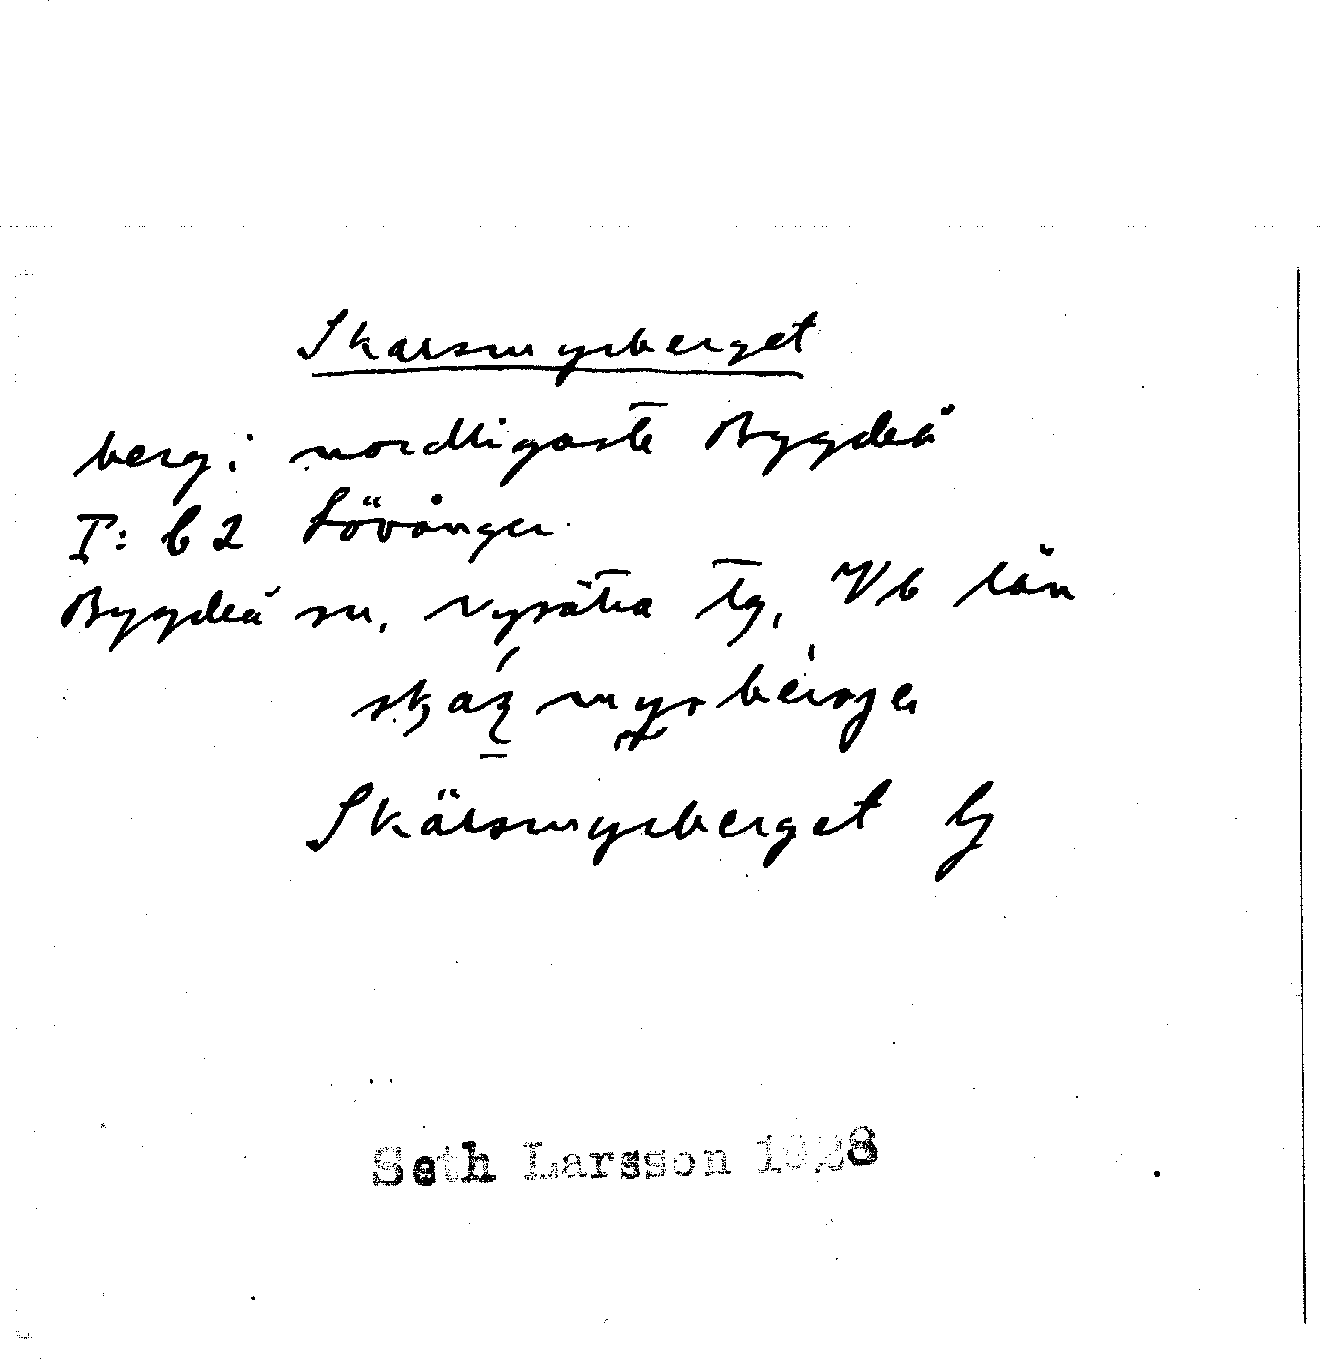 Skarsmyrberget
berg i nordligaste Bygdeå
I: b 2 Lövånger
Bygdeå sn, Nysätra tg, Vb län
Skärsmyrberget
Seth Larsson 1928